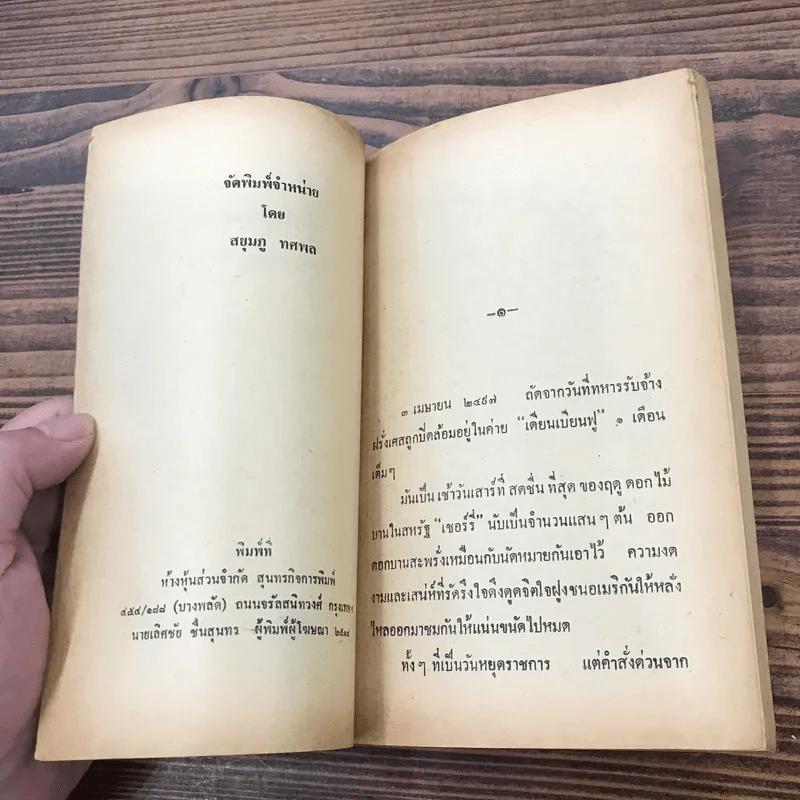 จัดพิมพ์จำหน่าย
โดย
สยุมภู ทศพล
พิมพ์ที่
ห้างหุ้นส่วนจำกัด สุนทรกิจการพิมพ์
๔๕๔/๑๘๘ (บางพลัด) ถนนจรัลสนิทวงศ์ กรุงเทพ ฯ
นายเลิศชัย ชื่นสุนทร ผู้พิมพ์ผู้โฆษณา ๒๕๑๘
—๑—
๓ เมษายน ๒๔๙๗ ถัดจากวันที่ทหารรับจ้าง
ฝรั่งเศสถูกปิดล้อมอยู่ในค่าย “เดียนเบียนฟู” ๑ เดือน
เต็มๆ
มันเป็น เช้าวันเสาร์ที่ สดชื่น ที่สุด ของฤดู ดอกไม้
บานในสหรัฐ “เชอร์รี่” นับเป็นจำนวนแสน ๆ ต้น ออก
ดอกบานสะพรั่งเหมือนกับนัดหมายกันเอาไว้ ความงด
งามและเสน่ห์ที่รัดรึงใจดึงดูดจิตใจฝูงชนอเมริกันให้หลั่ง
ไหลออกมาชมกันให้แน่นขนัดไปหมด
ทั้งๆ ที่เป็นวันหยุดราชการ แต่คำสั่งด่วนจาก